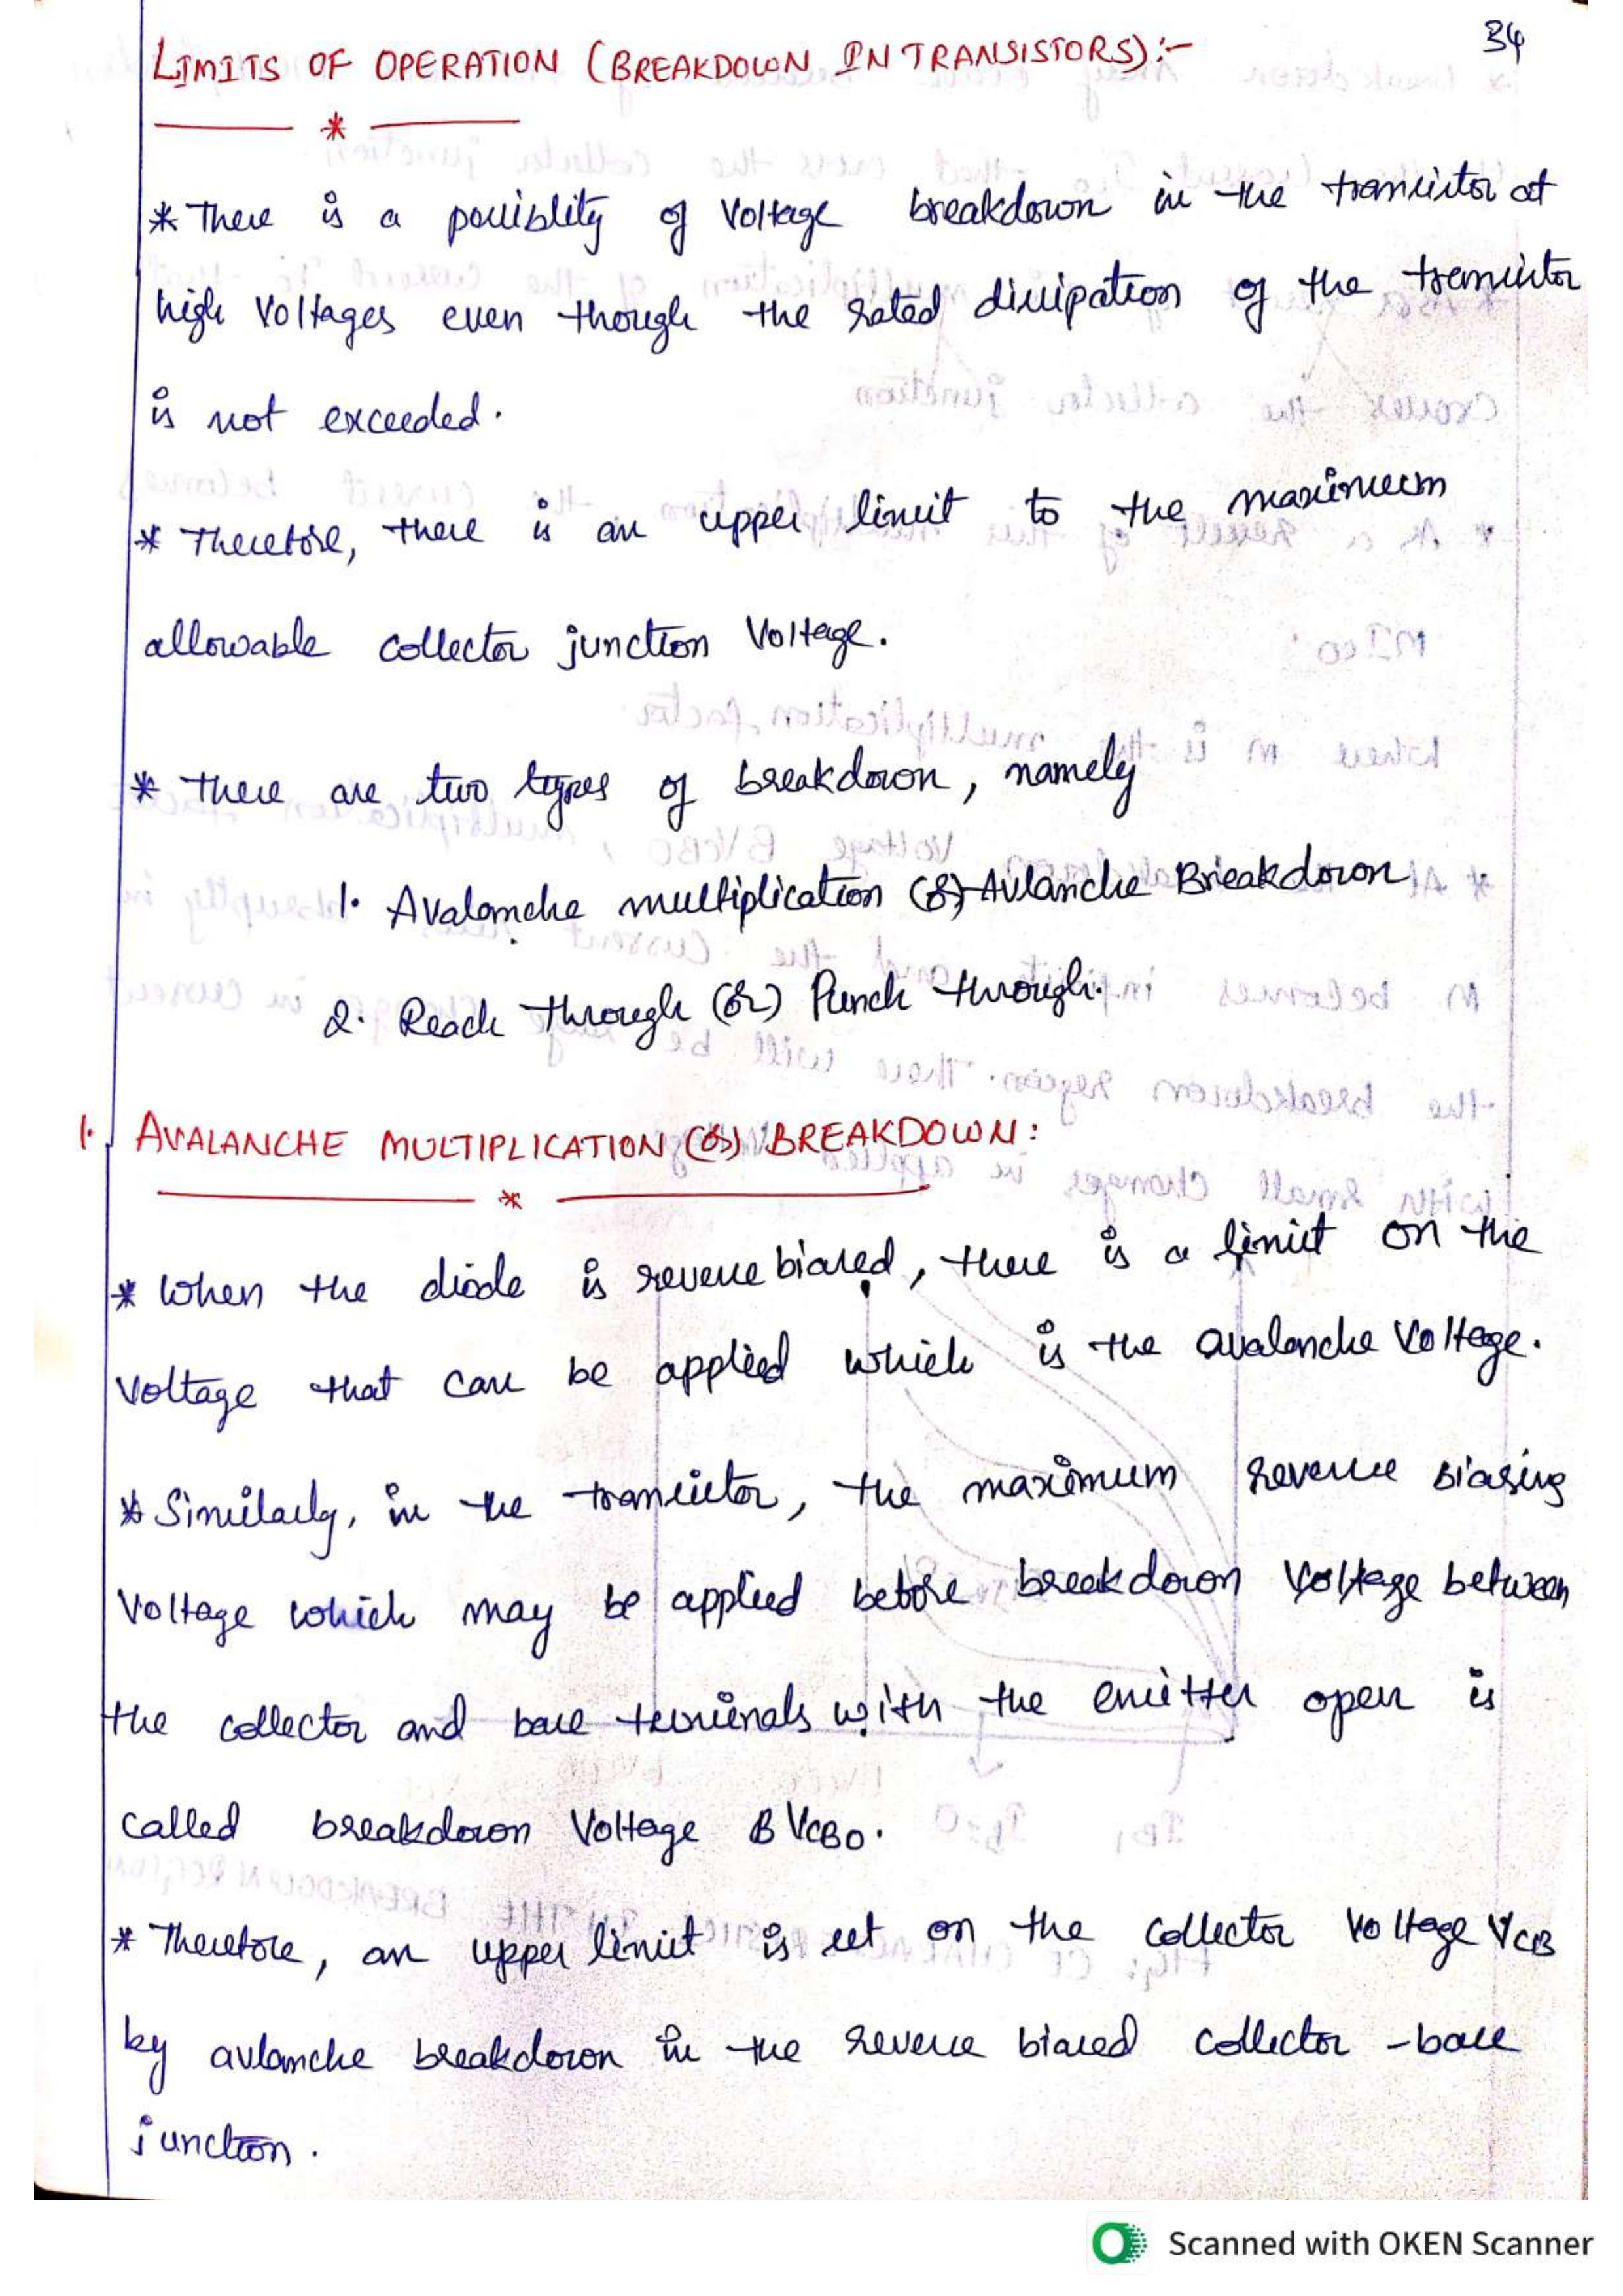 34
LIMITS OF OPERATION (BREAKDOWN IN TRANSISTORS):-
*
* There is a possiblity of Voltage breakdown in the transistor at
high Voltages even though the rated dissipation of the transistor
is not exceeded.
* Therefore, there is an upper limit to the maximum
allowable collector junction Voltage.
* There are two types of breakdown, namely
1. Avalanche multiplication (or) Avlanche Breakdown
2. Reach through (or) Punch through.
1. AVALANCHE MULTIPLICATION (or) BREAKDOWN:
*
* When the diode is reverse biased, there is a limit on the
Voltage that can be applied which is the avalanche Voltage.
* Similarly, in the transistor, the maximum reverse biasing
Voltage which may be applied before breakdown Voltage between
the collector and base terminals with the emitter open is
called breakdown Voltage BVCBO.
* Therefore, an upper limit is set on the collector Voltage VCB
by avlanche breakdown in the reverse biased collector -base
junction.
Scanned with OKEN Scanner